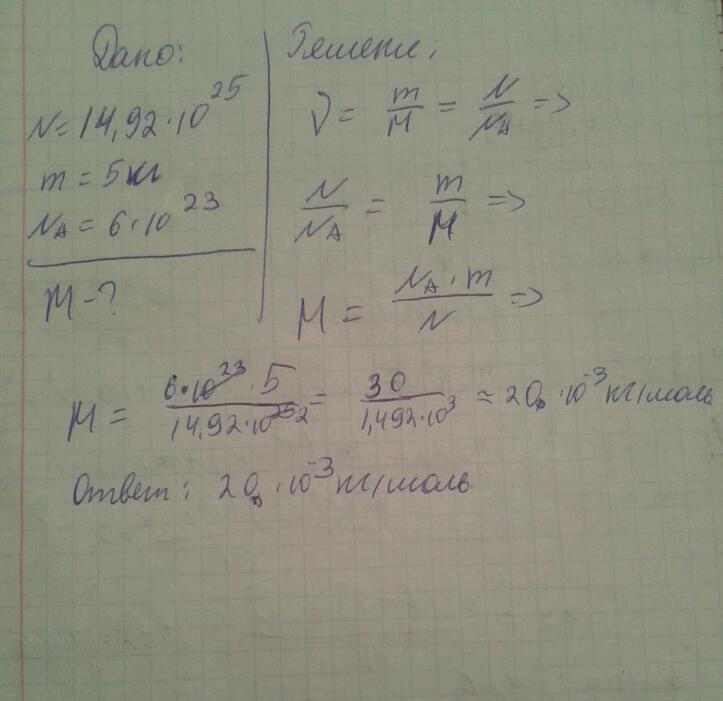 Дано:
N = 14,92 · 10^25
m = 5 кг
N_A = 6 · 10^23
M - ?
Решение,
ν = m/M = N/N_A =>
N/N_A = m/M =>
M = N_A · m / N =>
M = 6 · 10^23 · 5 / 14,92 · 10^25 2 = 30 / 1,492 · 10^3 ≈ 20 · 10^-3 кг/моль
Ответ: 20 · 10^-3 кг/моль